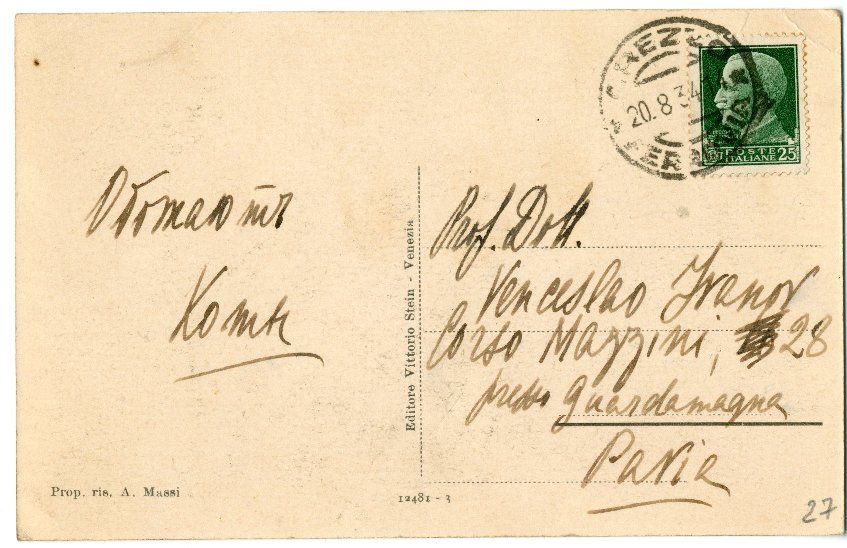 20.8.34
POSTE
ITALIANE 25
Обожают
Коты
Prof. Dott.
Venceslao Ivanov
Corso Mazzini, 28
presso Guardamagna
Pavia
Editore Vittorio Stein - Venezia
Prop. ris. A. Massi
12481 - 3
27